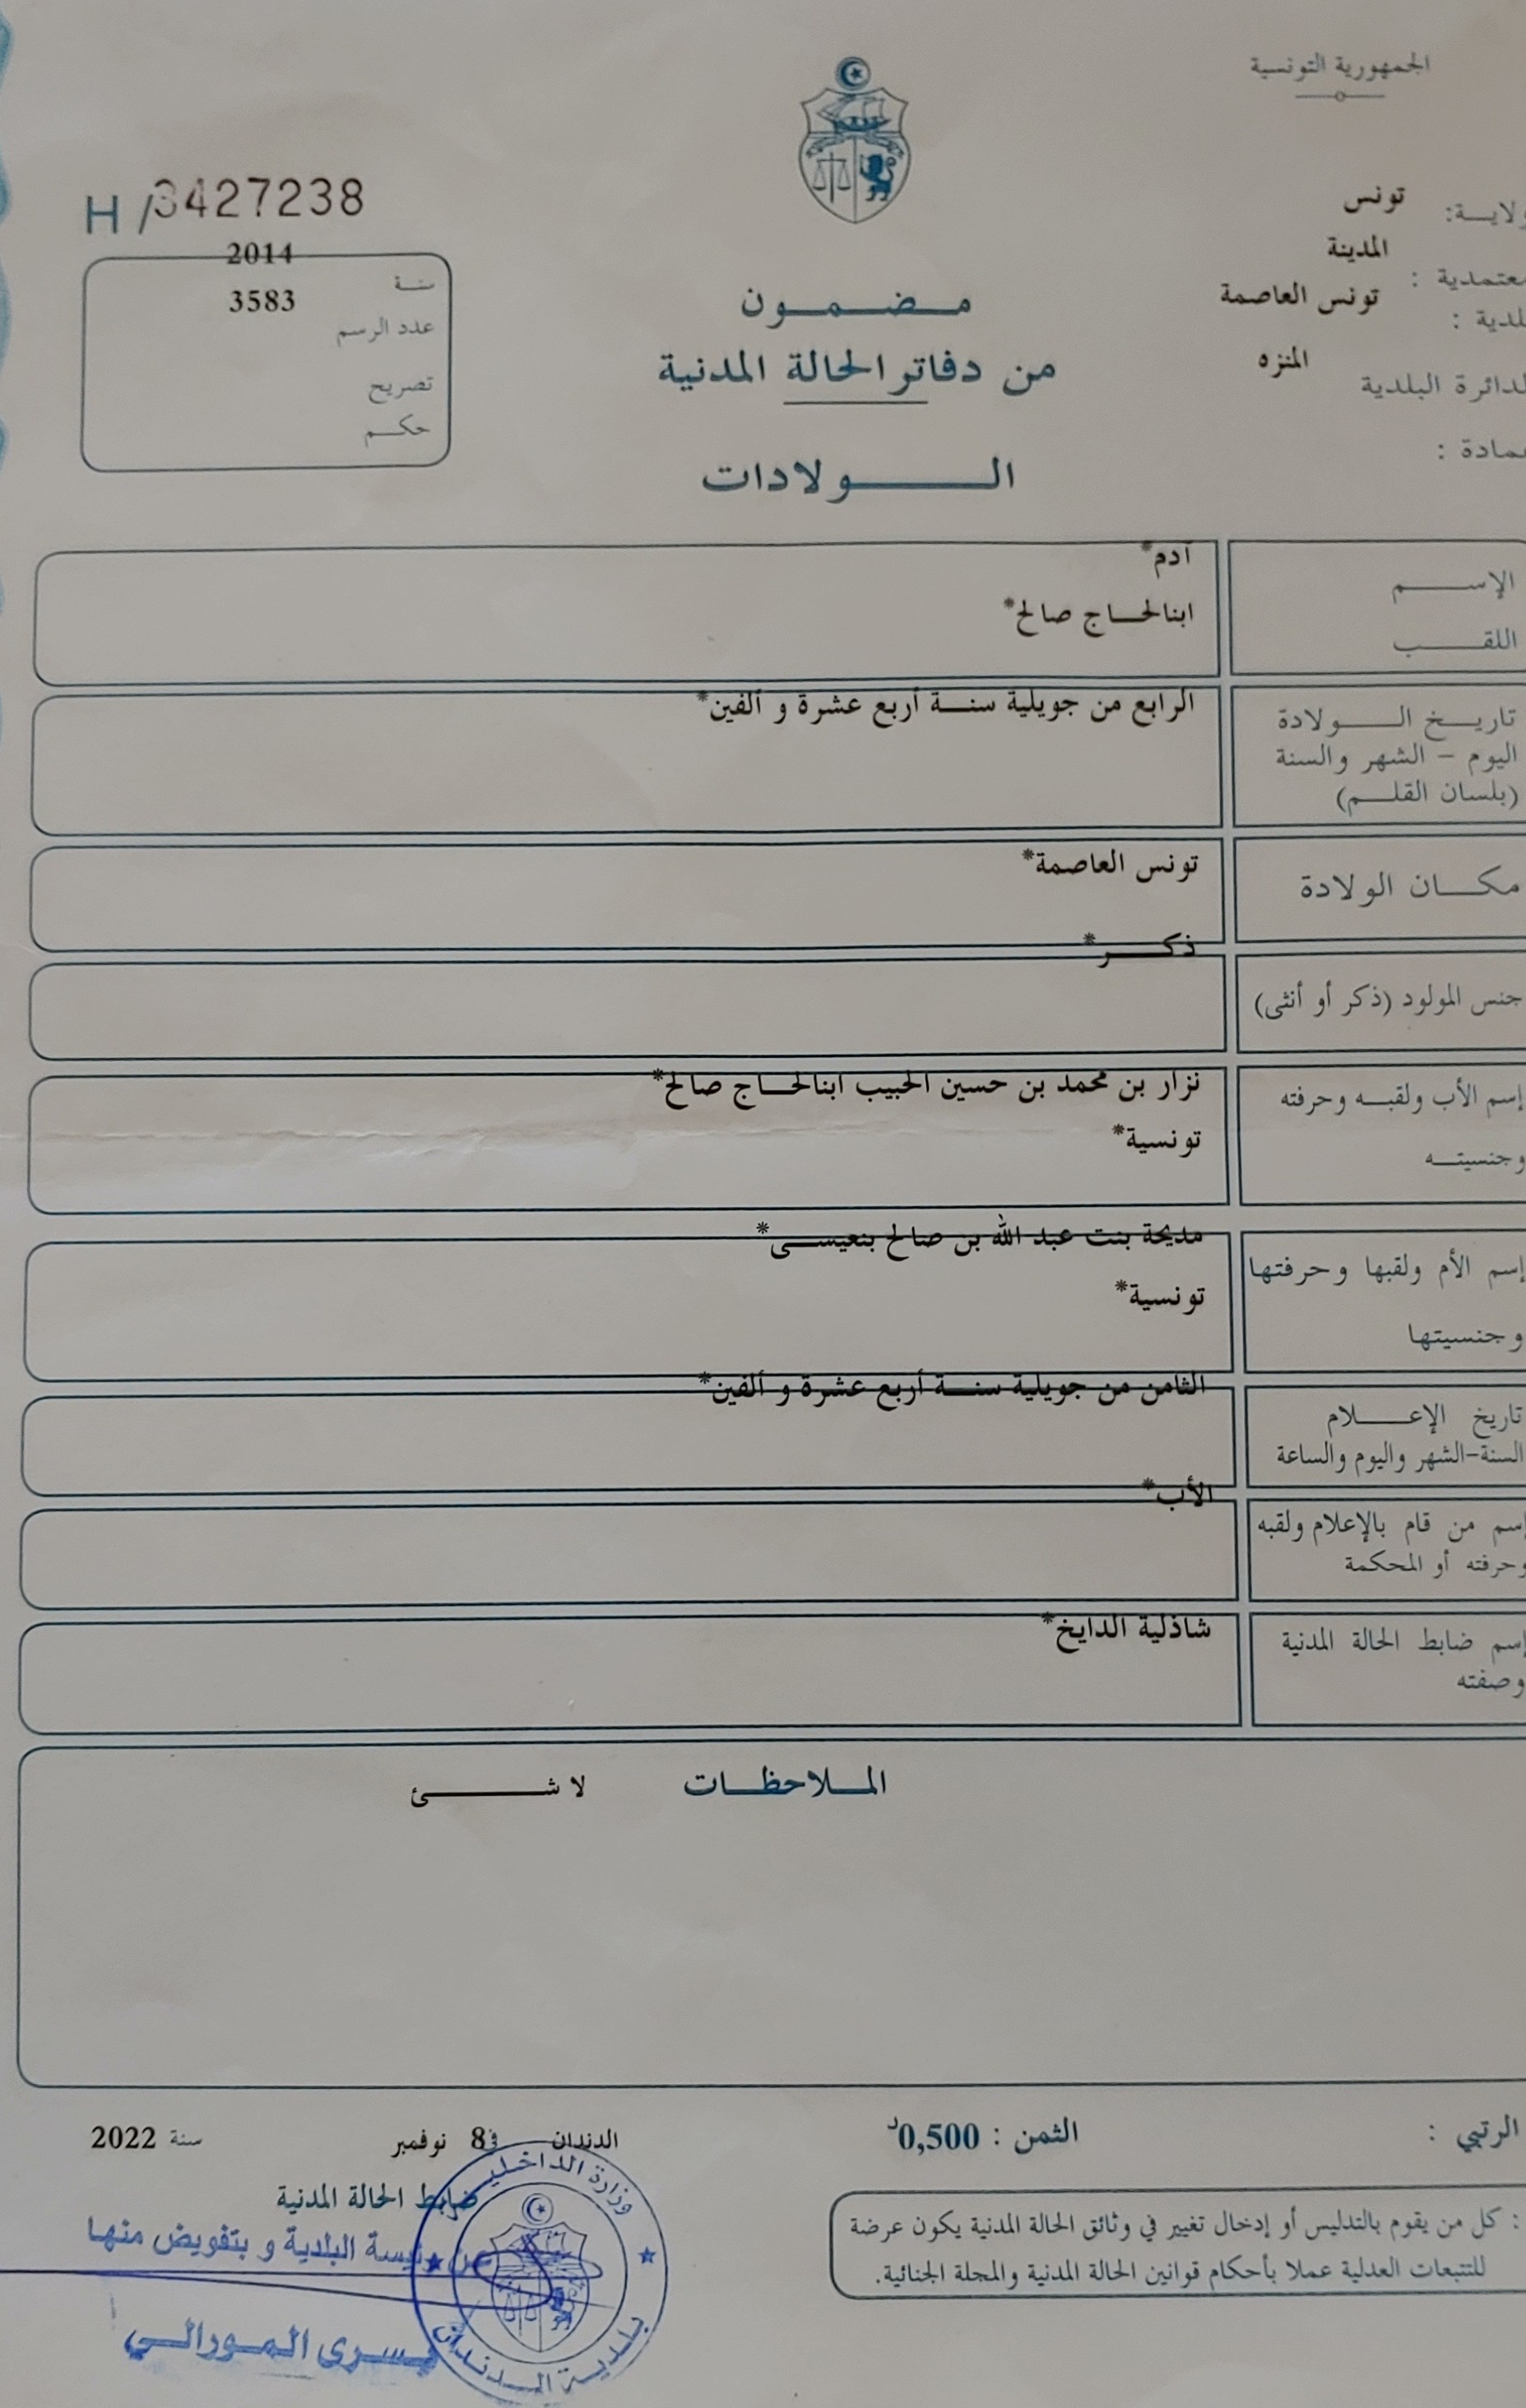 الجمهورية التونسية
H /3427238
ولاية: تونس
معتمدية : المدينة
بلدية : تونس العاصمة
الدائرة البلدية المنزه
عمادة :
سنة 2014
عدد الرسم 3583
تصريح
حكم
مضمون
من دفاتر الحالة المدنية
الولادات
الإسم آدم*
اللقب ابنالحاج صالح*
تاريخ الولادة الرابع من جويلية سنة أربع عشرة و ألفين*
اليوم – الشهر والسنة
(بلسان القلم)
مكان الولادة تونس العاصمة*
جنس المولود (ذكر أو أنثى) ذكر*
إسم الأب ولقبه وحرفته نزار بن محمد بن حسين الحبيب ابنالحاج صالح*
وجنسيته تونسية*
إسم الأم ولقبها وحرفتها مديحة بنت عبد الله بن صالح بنعيسى*
وجنسيتها تونسية*
تاريخ الإعلام الثامن من جويلية سنة أربع عشرة و ألفين*
السنة-الشهر واليوم والساعة
إسم من قام بالإعلام ولقبه الأب*
وحرفته أو المحكمة
إسم ضابط الحالة المدنية شاذلية الدايخ*
وصفته
الملاحظات لا شئ
الرتبي :
الثمن : 0,500د
الدندان في 8 نوفمبر سنة 2022
ضابط الحالة المدنية
عن رئيسة البلدية و بتفويض منها
يسرى المورالي
وزارة الداخلية
بلدية الدندان
: كل من يقوم بالتدليس أو إدخال تغيير في وثائق الحالة المدنية يكون عرضة
للتتبعات العدلية عملا بأحكام قوانين الحالة المدنية والمجلة الجنائية.